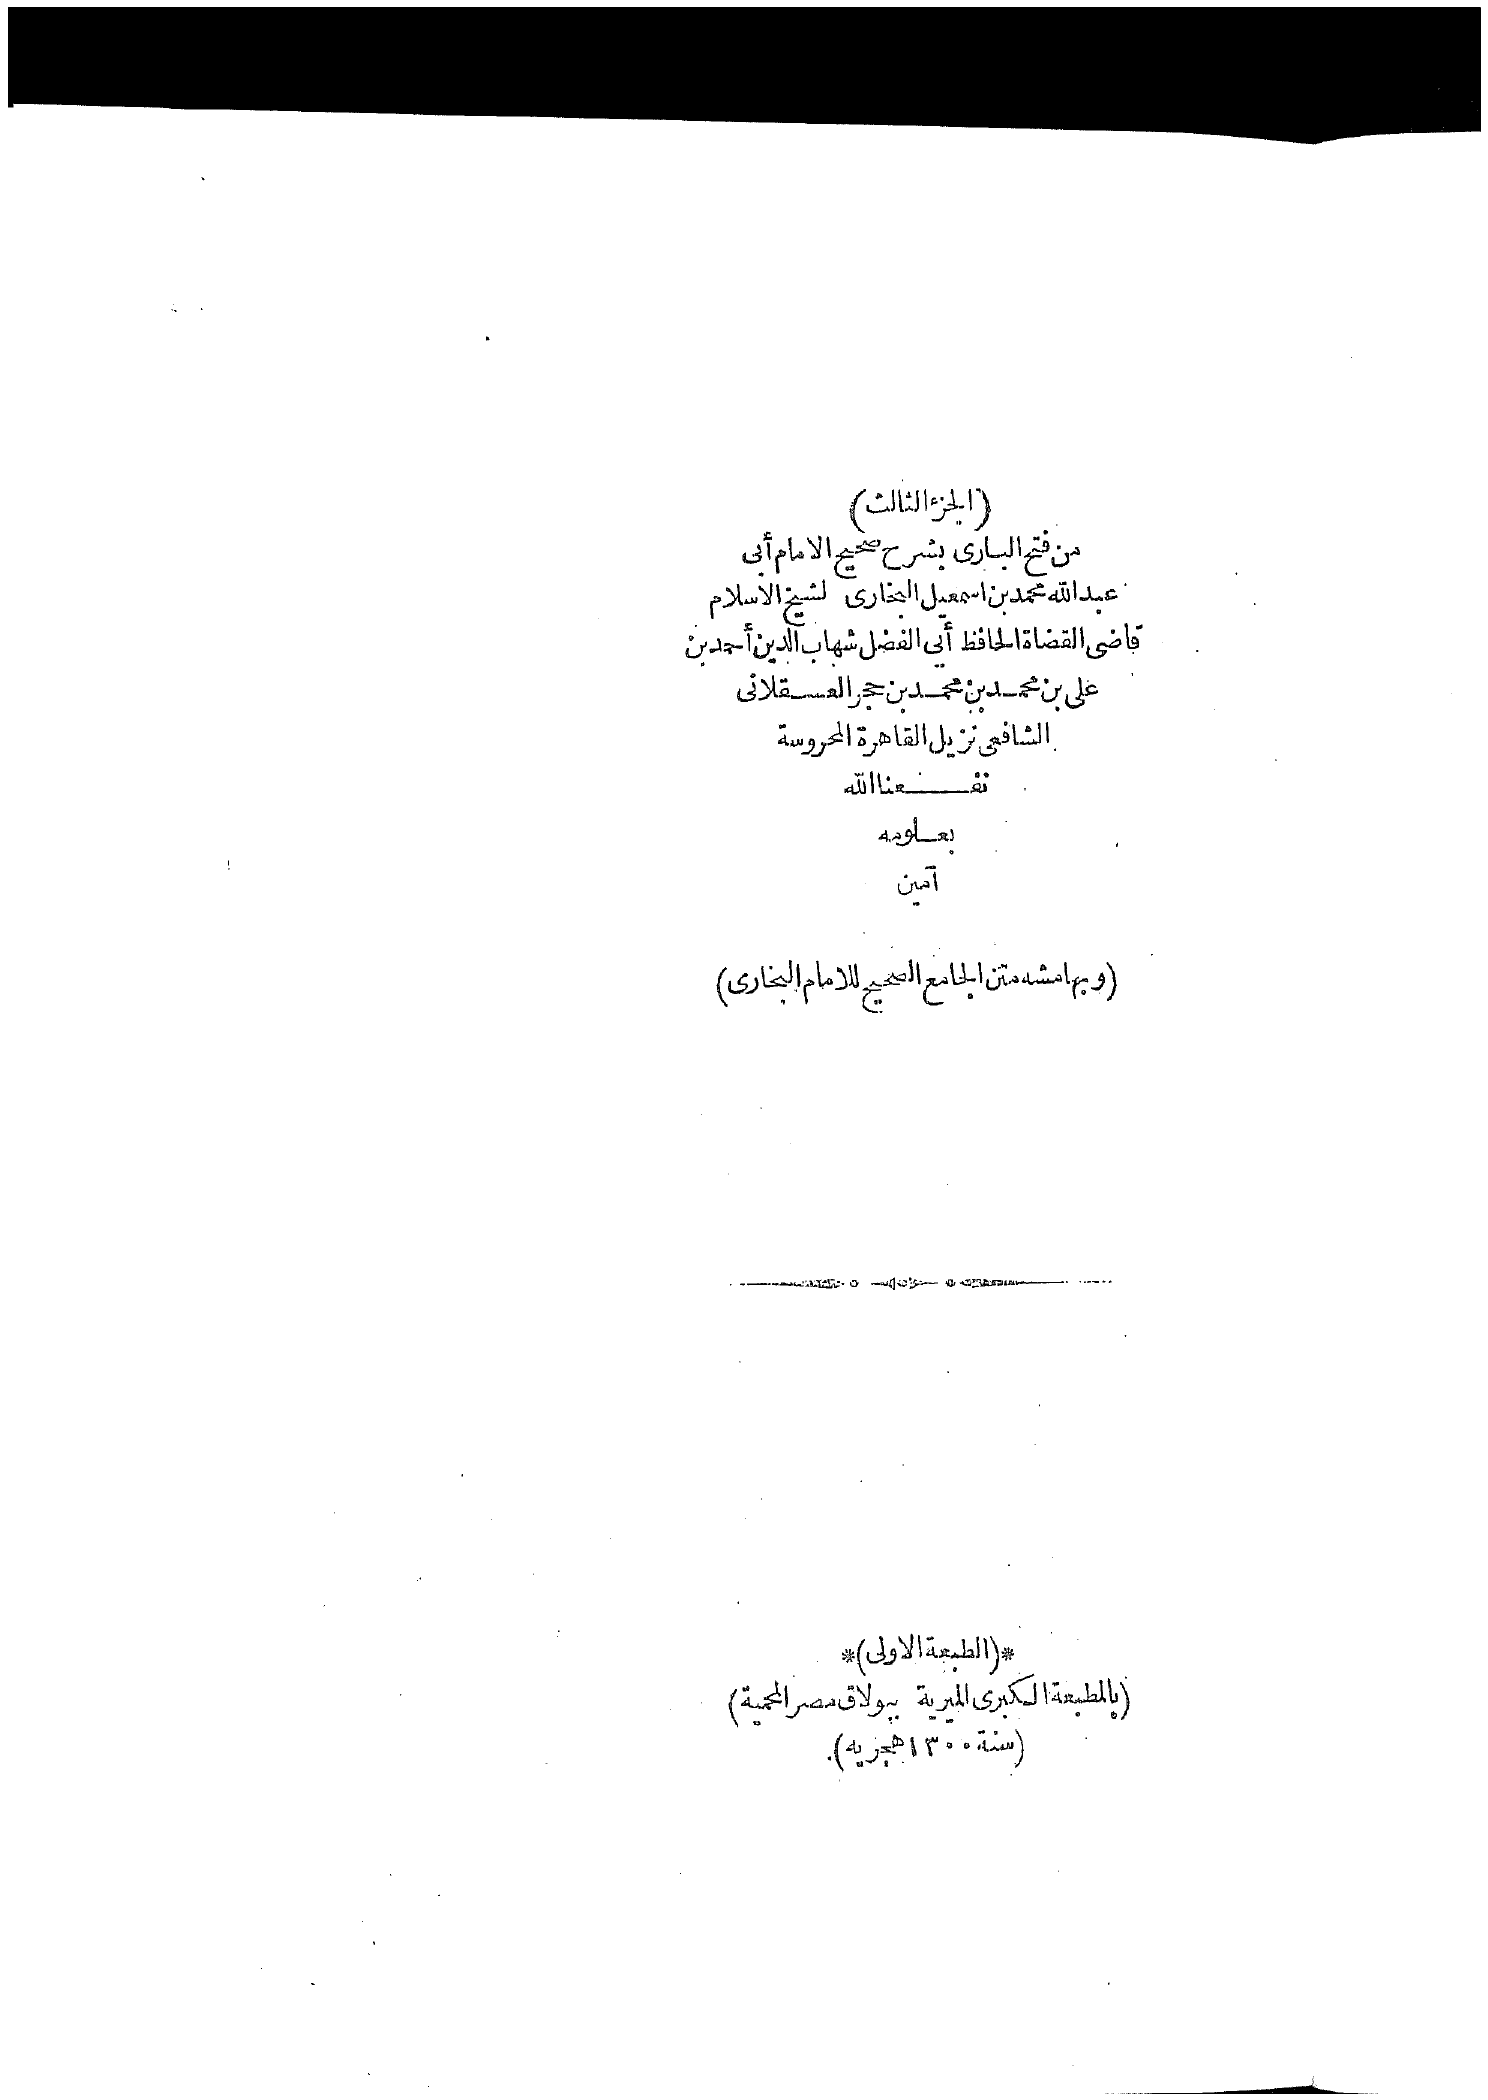 (الجزء الثالث)
من فتح البارى بشرح صحيح الامام أبى
عبد الله محمد بن اسمعيل البخارى لشيخ الاسلام
قاضى القضاة الحافظ أبى الفضل شهاب الدين أحمد بن
على بن محمد بن محمد بن حجر العسقلانى
الشافعى نزيل القاهرة المحروسة
نفعنا الله
بعلومه
آمين
(وبهامشه متن الجامع الصحيح للامام البخارى)
*(الطبعة الاولى)*
(بالمطبعة الكبرى الميرية ببولاق مصر المحمية)
(سنة ١٣٠٠ هجريه)